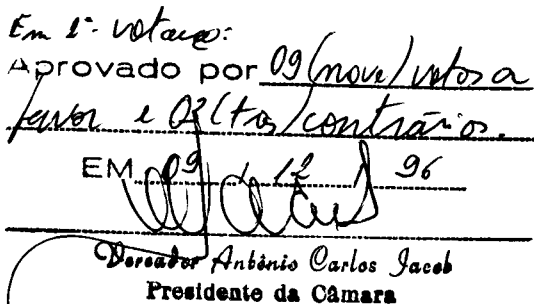 Em 1ª votação:
Aprovado por 09 (nove) votos a
favor e 03 (três) contrários.
EM 09 / 12 / 96
Vereador Antônio Carlos Jacob
Presidente da Câmara